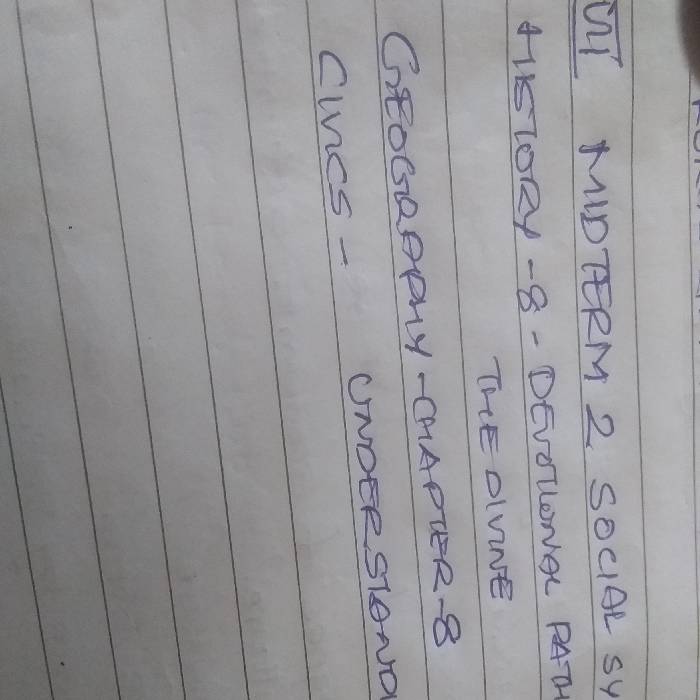 VII MIDTERM 2 SOCIAL SY
HISTORY - 8 - DEVOTIONAL PATH
THE DIVINE
GEOGRAPHY - CHAPTER - 8
CIVICS - UNDERSTAND